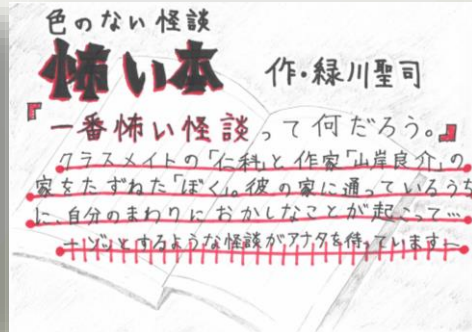 色のない怪談
怖い本 作・緑川聖司
『一番怖い怪談って何だろう。』
クラスメイトの「仁科」と作家「山岸良介」の
家をたずねた「ぼく」。彼の家に通っているうち
に、自分のまわりにおかしなことが起こって…
―ゾッとするような怪談がアナタを待っています―